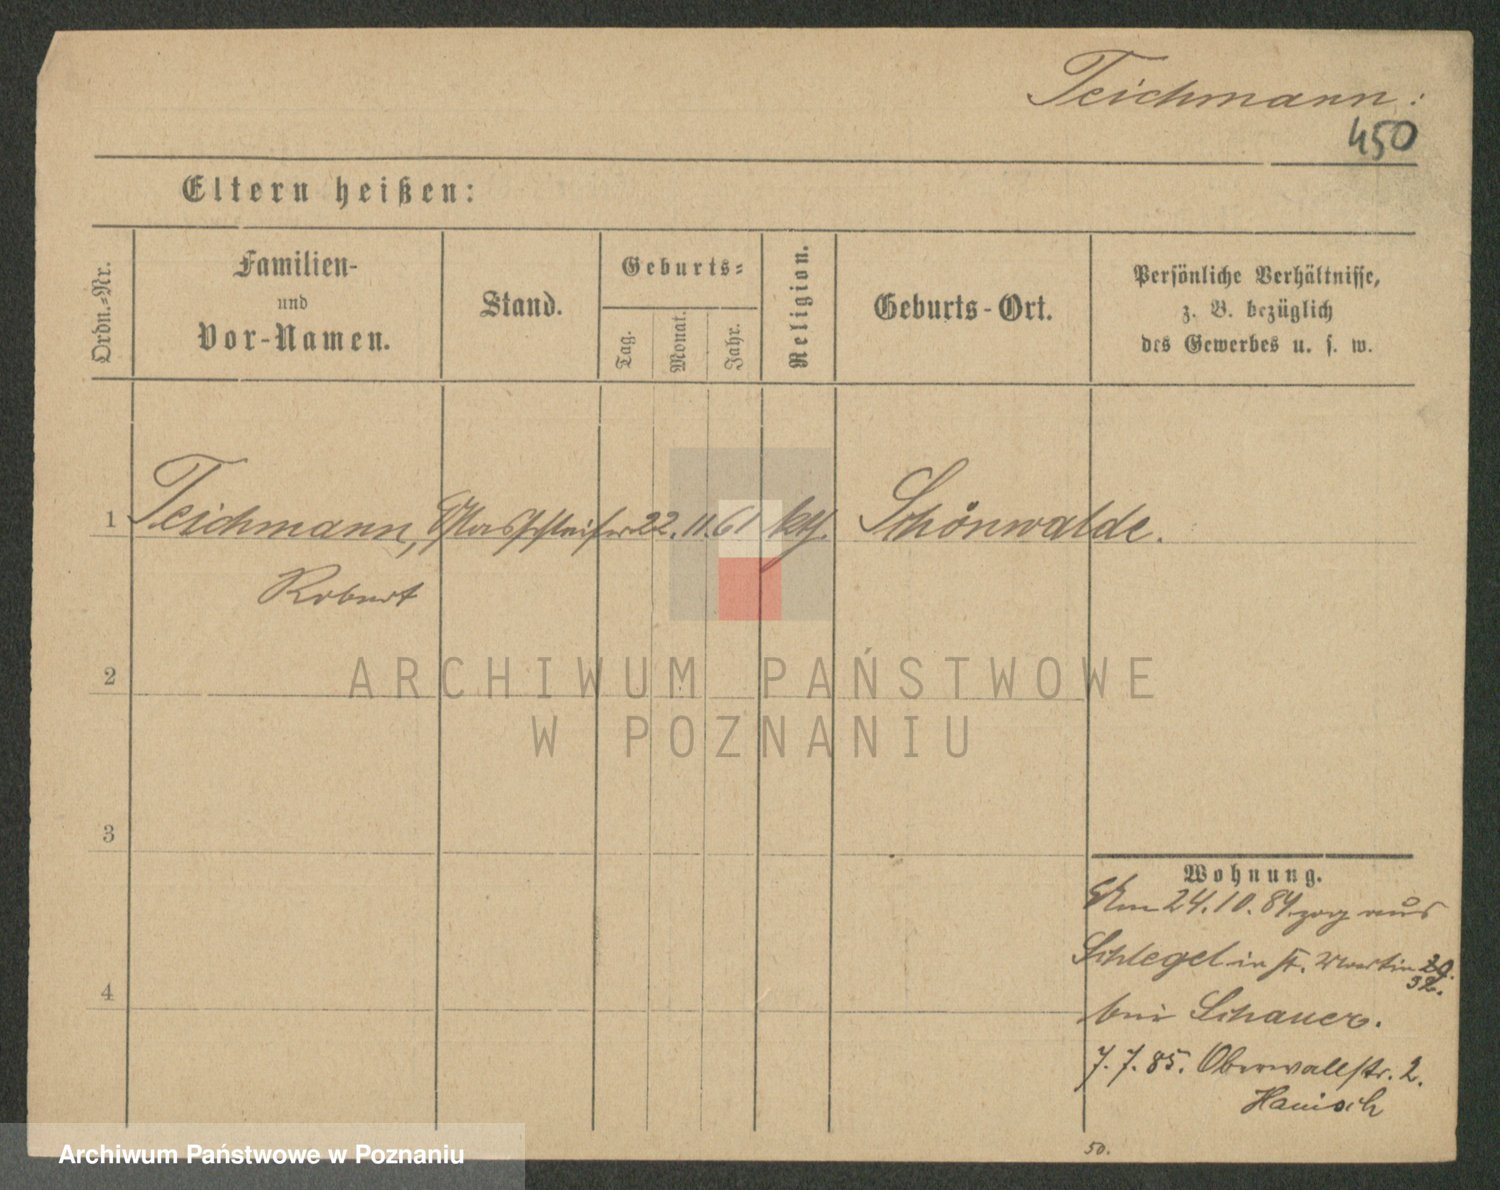 Teichmann.
450
Eltern heißen:
Ordn.-Nr.
Familien-
und
Vor-Namen.
Stand.
Geburts-
Tag.
Monat.
Jahr.
Religion.
Geburts-Ort.
Persönliche Verhältnisse,
z. B. bezüglich
des Gewerbes u. s. w.
1 Teichmann, Glasschleifer 22. 11. 61 kth. Schönwalde.
Robert
2
ARCHIWUM PAŃSTWOWE
W POZNANIU
3
Wohnung.
Am 24.10.84 zog aus
Schlegel in St. Martin 29.
32.
4
bei Schauer.
7. 7. 85. Oberwallstr. 2.
Hanisch
50.
Archiwum Państwowe w Poznaniu